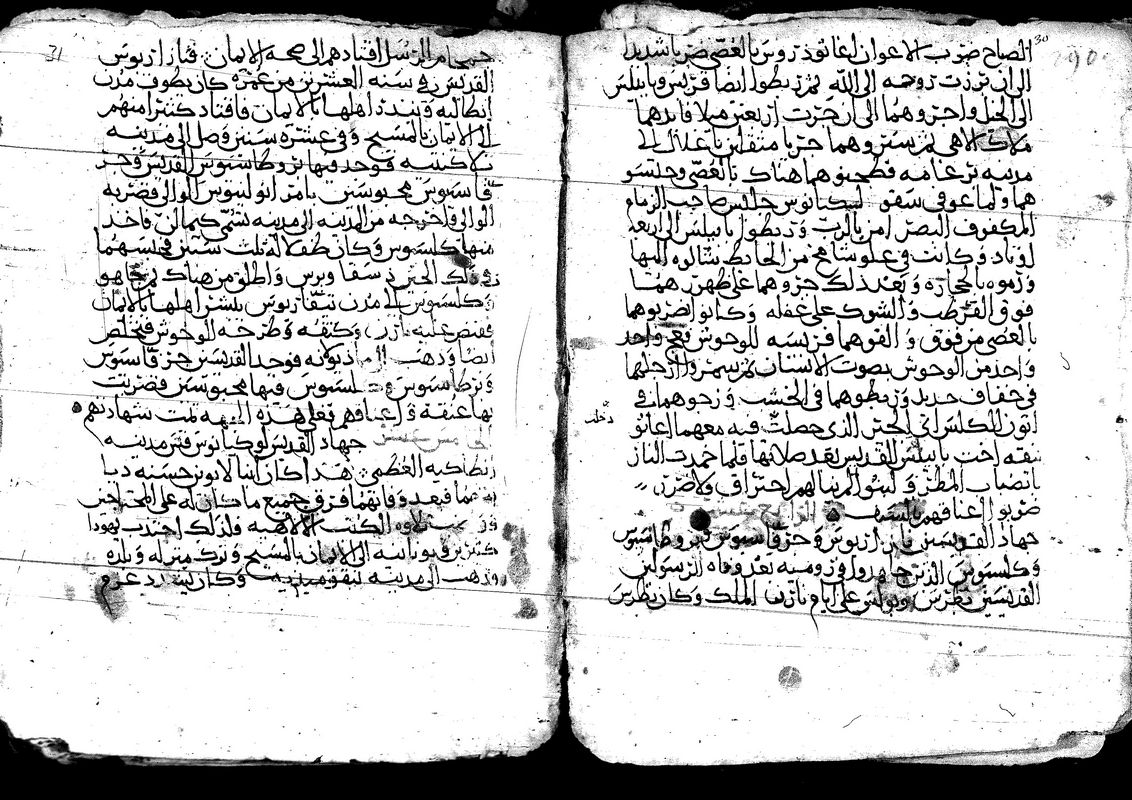 30
290
الصباح ضرب الاعوان اغاثوذروس بالعصى ضربا شديدا
الى ان برزت روحه الى الله ثم ربطوا ايضا قربس وبابيلس
الى الخيل واجروهما الى ان جرت اربعين ميلا قايدهما
ملاك الاهى ثم سيروهما حربا مثقلين باغلال الى
مدينه ترغامه فطحنوهما هناك بالعصى وجلسو
هما ولما عوفى سقو ليكانوس جليس صاحب الزمام
المكفوف البصر امن بالرب وربطوا بابيلس الى اربعة
اوتاد وكانت فى علو شامخ من الحايط
ورموه بالحجاره وبعد ذلك جروهما على ظهورهما
فوق القرطب والشوك على غفله وكانوا يضربوهما
بالعصى من فوق والقوهما فريسه للوحوش فصح واحد
واحد من الوحوش بصوت الانسان ثم سمروا ارجلهما
فى خفاف حديد وربطوهما فى الخشب وزجوهما فى
اتون الكلس اتى الختن الذى حصلت فيه معهما اغاثو
نيقه اخت بابيلس القديس بعد صلاتها فلما خمدت النار
بانصباب المطر ولبثوا لم ينالهم احتراق ولا ضرر
ضربوا اعناقهم بالسيف الرابع عشر
جهاد القديسين نازاريوس وجرفاسيوس وبروطاسيوس
وكلسيوس الذين جاهدوا فى روميه بعد وفاه الرسولين
القديسين بطرس وبولس على ايام نارن الملك وكان بطرس
31
جمجام الرسل اقتادهم الى صحه الايمان فنازاريوس
القديس فى سنه العشرين من عمره كان يطوف مدن
ايطاليه وينذر اهلها بالايمان فاقتاد كثيرا منهم
الى الايمان بالمسيح وفى عشره سنين وصل الى مدينه
بلاكنتيه فوجد فيها بروطاسيوس القديس وجر
فاسيوس محبوسين بامر انولينوس الوالى فضربه
الوالى واخرجه من المدينه الى مدينه تسمى كيمالين فاخذ
منها كلسيوس وكان طفلا له ثلث سنين فحبسهما
وكلسيوس الى مدن تيقاريوس يبشر اهلها بالايمان
فقبض عليه نارن وكتفه وطرحه للوحوش فتخلص
ايضا وذهب الى ماديولانه فوجد القديسين جرفاسيوس
وبروطاسيوس وكلسيوس فيها محبوسين فضربت
بها عنقه واعناقهم فعلى هذه الجهه تمت شهادتهم
خامس عشر جهاد القديس لوكيانوس قس مدينه
انطاكيه العظمى هذا كان ابنا لابوين حسنه دينا
وبعد وفاتهما فرق جميع ما كان له على المحتاجين
تلاوه الكتب الالاهيه ولذلك اجتذب يهودا
كثيرين ويونانيه الى الايمان بالمسيح وترك منزله وبلده
وذهب الى مدينه نيقوميديه وكان يشدد عزم